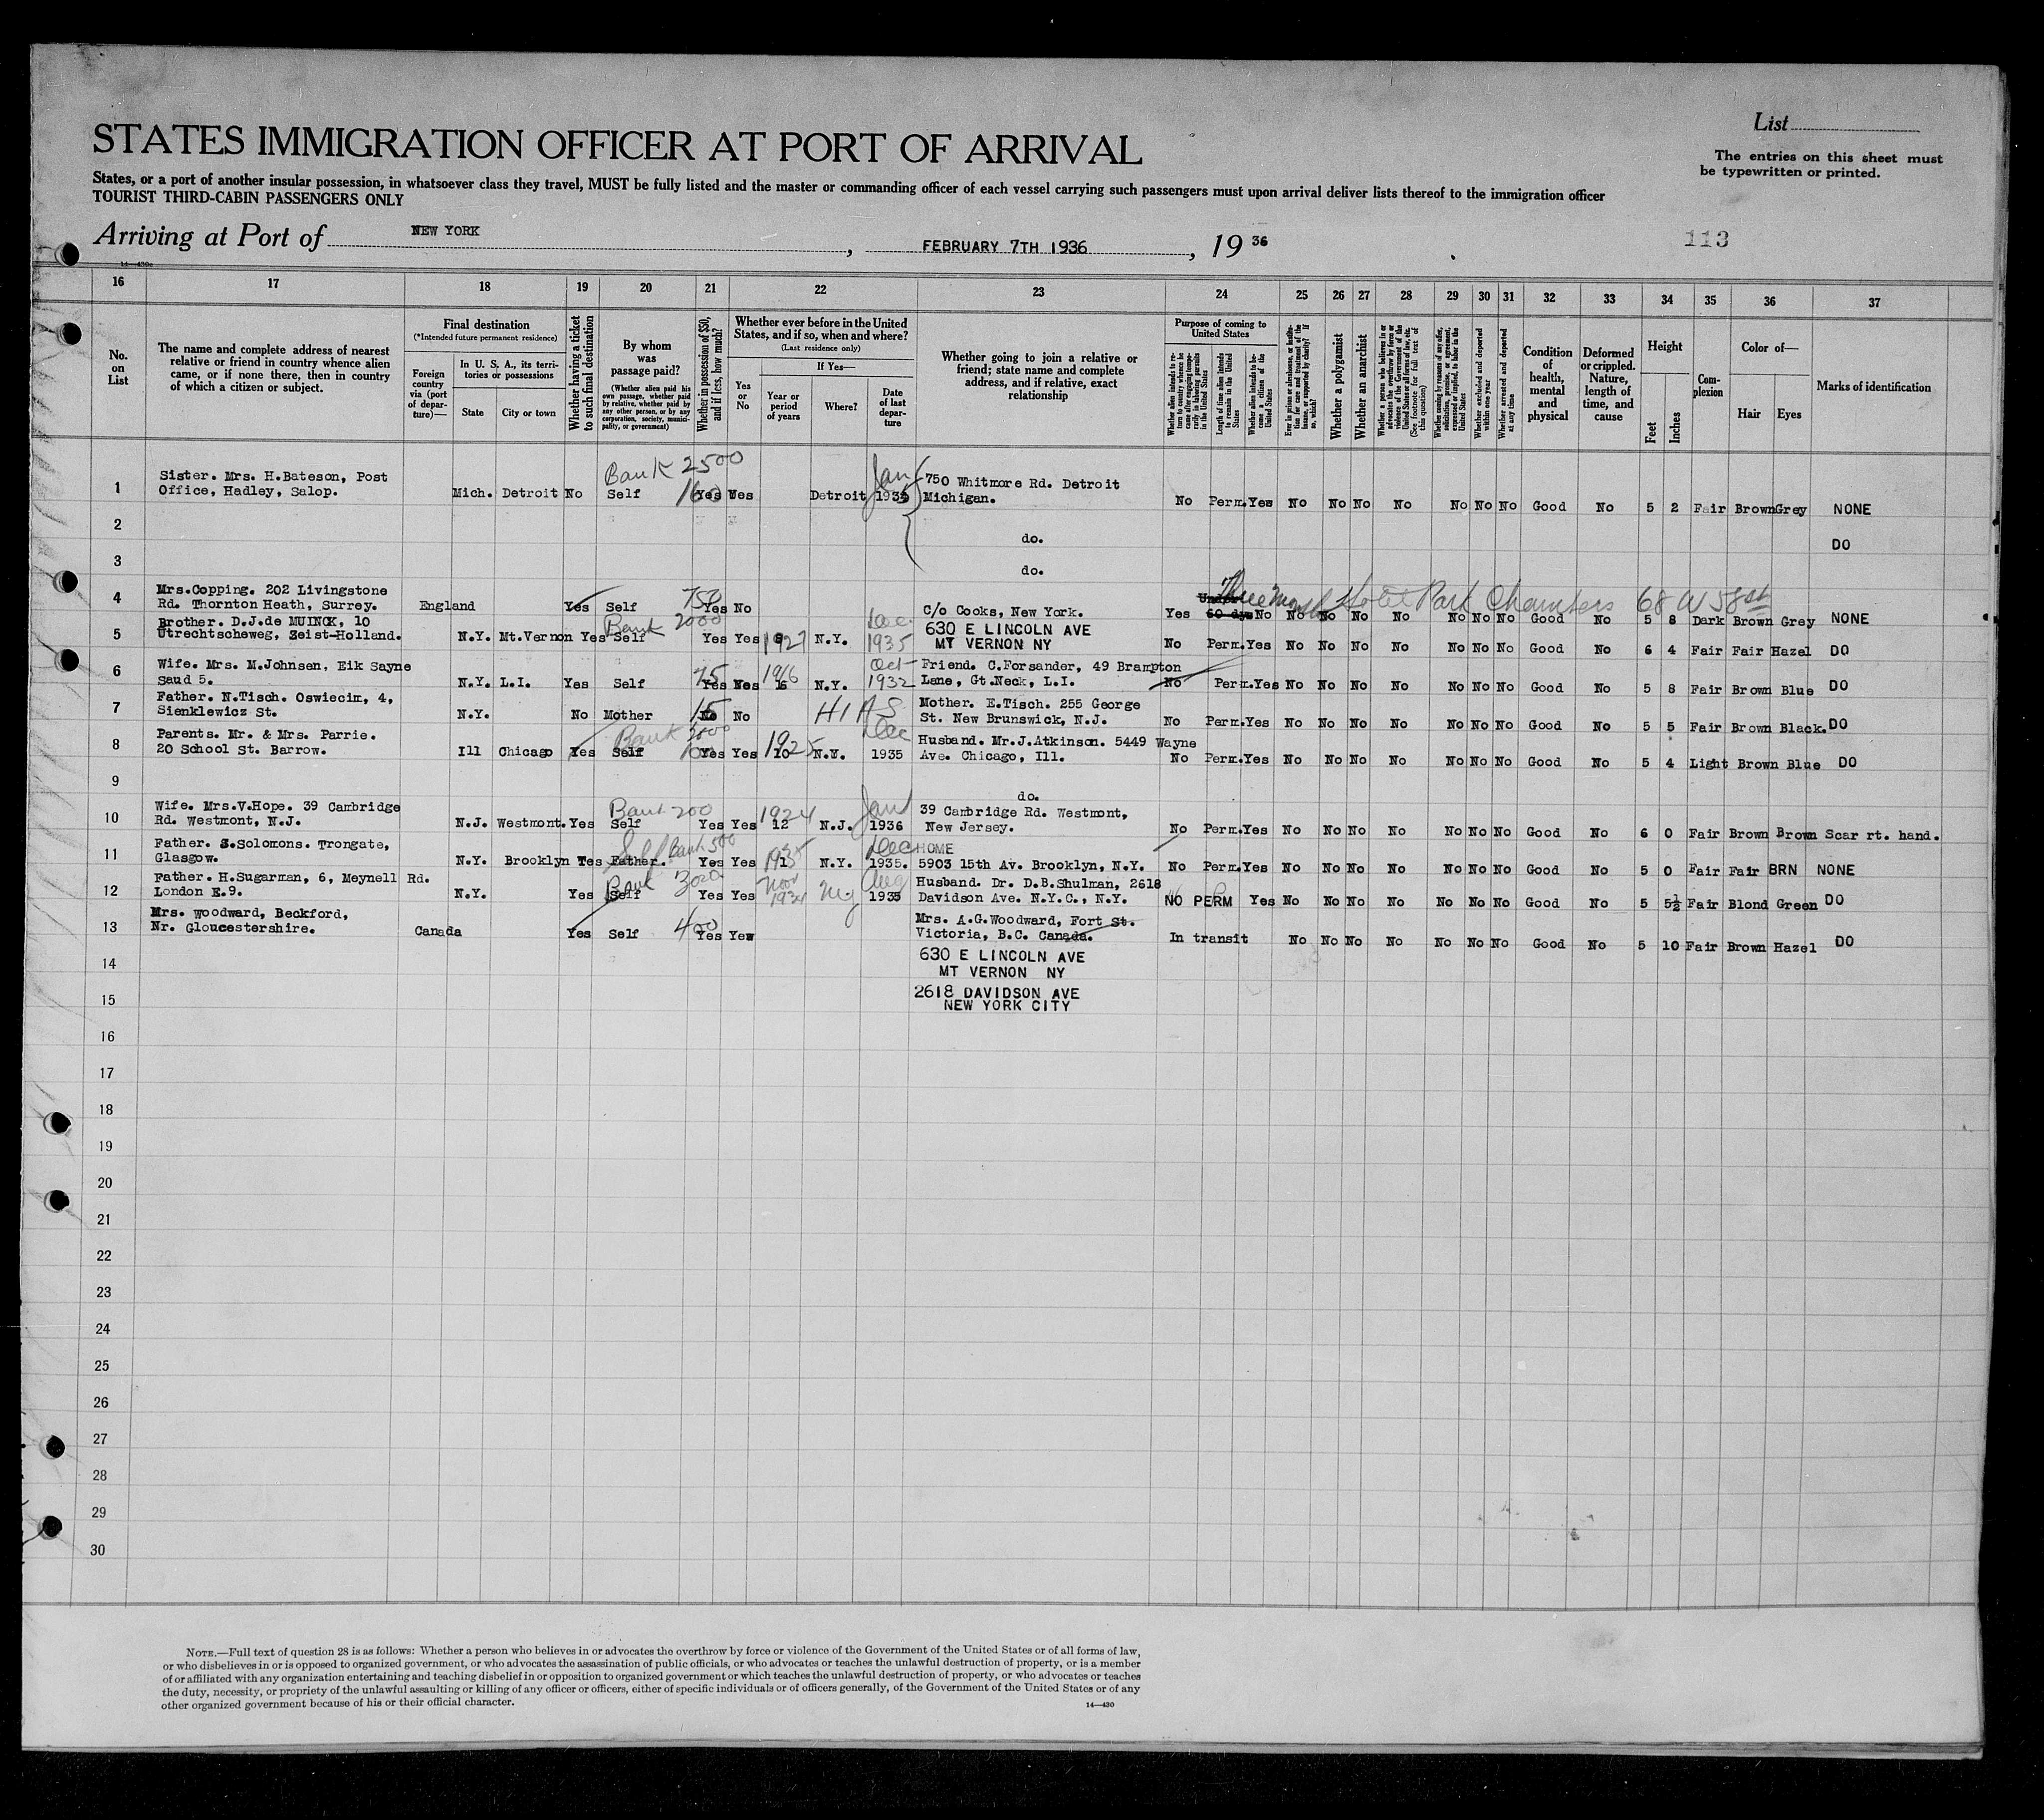 STATES IMMIGRATION OFFICER AT PORT OF ARRIVAL
List
The entries on this sheet must
be typewritten or printed.
States, or a port of another insular possession, in whatsoever class they travel, MUST be fully listed and the master or commanding officer of each vessel carrying such passengers must upon arrival deliver lists thereof to the immigration officer
TOURIST THIRD-CABIN PASSENGERS ONLY
Arriving at Port of NEW YORK, FEBRUARY 7TH 1936, 19 36
113
16 17 18 19 20 21 22 23 24 25 26 27 28 29 30 31 32 33 34 35 36 37
No. on List
The name and complete address of nearest relative or friend in country whence alien came, or if none there, then in country of which a citizen or subject.
Final destination
(*Intended future permanent residence)
Foreign country via (port of departure)—
In U. S. A., its territories or possessions
State
City or town
Whether having a ticket to such final destination
By whom was passage paid?
(Whether alien paid his own passage, whether paid by relative, whether paid by any other person, or by any corporation, society, municipality, or government)
Whether in possession of $50, and if less, how much?
Whether ever before in the United States, and if so, when and where?
(Last residence only)
Yes or No
If Yes—
Year or period of years
Where?
Date of last departure
Whether going to join a relative or friend; state name and complete address, and if relative, exact relationship
Purpose of coming to United States
Whether alien intends to return to country whence he came after engaging temporarily in laboring pursuits in the United States
Length of time alien intends to remain in the United States
Whether alien intends to become a citizen of the United States
Ever in prison or almshouse, or institution for care and treatment of the insane, or supported by charity? If so, which?
Whether a polygamist
Whether an anarchist
Whether a person who believes in or advocates the overthrow by force or violence of the Government of the United States or all forms of law, etc. (See footnote for full text of this question)
Whether coming by reasons of any offer, solicitation, promise, or agreement, expressed or implied, to labor in the United States
Whether excluded and deported within one year
Whether arrested and deported at any time
Condition of health, mental and physical
Deformed or crippled. Nature, length of time, and cause
Height
Feet
Inches
Complexion
Color of—
Hair
Eyes
Marks of identification
1 Sister. Mrs. H.Bateson, Post Bank 2500 Jan 750 Whitmore Rd. Detroit
Office, Hadley, Salop. Mich. Detroit No Self Yes Yes Detroit 1935 Michigan. No Perm. Yes No No No No No No No Good No 5 2 Fair Brown Grey NONE
2 do. DO
3 do.
4 Mrs.Copping. 202 Livingstone 750 Three months Hotel Park Chambers 68 W 58 st
Rd. Thornton Heath, Surrey. England Yes Self Yes No c/o Cooks, New York. Yes 60 dys No No No No No No No No Good No 5 8 Dark Brown Grey NONE
5 Brother. D.J.de MUINCK, 10 Bank 2000 Dec 630 E LINCOLN AVE
Utrechtscheweg, Zeist-Holland. N.Y. Mt.Vernon Yes Self Yes Yes 1927 N.Y. 1935 MT VERNON NY No Perm. Yes No No No No No No No Good No 6 4 Fair Fair Hazel DO
6 Wife. Mrs. M.Johnsen, Eik Sayne 75 1916 Oct Friend. C.Forsander, 49 Brampton
Saud 5. N.Y. L.I. Yes Self Yes N.Y. 1932 Lane, Gt.Neck, L.I. No Perm. Yes No No No No No No No Good No 5 8 Fair Brown Blue DO
7 Father. N.Tisch. Oswiecim, 4, 15 HIAS Mother. E.Tisch. 255 George
Sienklewicz St. N.Y. No Mother No No St. New Brunswick, N.J. No Perm. Yes No No No No No No No Good No 5 5 Fair Brown Black. DO
8 Parents. Mr. & Mrs. Parrie. Bank 3000 1925 Dec Husband. Mr.J.Atkinson. 5449 Wayne
20 School St. Barrow. Ill Chicago Yes Self Yes Yes 10 N.Y. 1935 Ave. Chicago, Ill. No Perm. Yes No No No No No No No Good No 5 4 Light Brown Blue DO
9 do.
10 Wife. Mrs.V.Hope. 39 Cambridge Bank 200 1924 Jan 39 Cambridge Rd. Westmont,
Rd. Westmont, N.J. N.J. Westmont. Yes Self Yes Yes 12 N.J. 1936 New Jersey. No Perm. Yes No No No No No No No Good No 6 0 Fair Brown Brown Scar rt. hand.
11 Father. S.Solomons. Trongate, Self Bank 500 1935 Dec HOME
Glasgow. N.Y. Brooklyn Yes Father. Yes Yes 1 N.Y. 1935. 5903 15th Av. Brooklyn, N.Y. No Perm. Yes No No No No No No No Good No 5 0 Fair Fair BRN NONE
12 Father. H.Sugarman, 6, Meynell Rd. Bank 3000 Nov Aug Husband. Dr. D.B.Shulman, 2618
London E.9. N.Y. Yes Self Yes Yes 1934 NY 1935 Davidson Ave. N.Y.C., N.Y. NO PERM Yes No No No No No No No Good No 5 5½ Fair Blond Green DO
13 Mrs. Woodward, Beckford, 400 Mrs. A.G.Woodward, Fort St.
Nr. Gloucestershire. Canada Yes Self Yes Yes Victoria, B.C. Canada. In transit No No No No No No No Good No 5 10 Fair Brown Hazel DO
14 630 E LINCOLN AVE
MT VERNON NY
15 2618 DAVIDSON AVE
NEW YORK CITY
16
17
18
19
20
21
22
23
24
25
26
27
28
29
30
NOTE.—Full text of question 28 is as follows: Whether a person who believes in or advocates the overthrow by force or violence of the Government of the United States or of all forms of law,
or who disbelieves in or is opposed to organized government, or who advocates the assassination of public officials, or who advocates or teaches the unlawful destruction of property, or is a member
of or affiliated with any organization entertaining and teaching disbelief in or opposition to organized government or which teaches the unlawful destruction of property, or who advocates or teaches
the duty, necessity, or propriety of the unlawful assaulting or killing of any officer or officers, either of specific individuals or of officers generally, of the Government of the United States or of any
other organized government because of his or their official character.
14—430